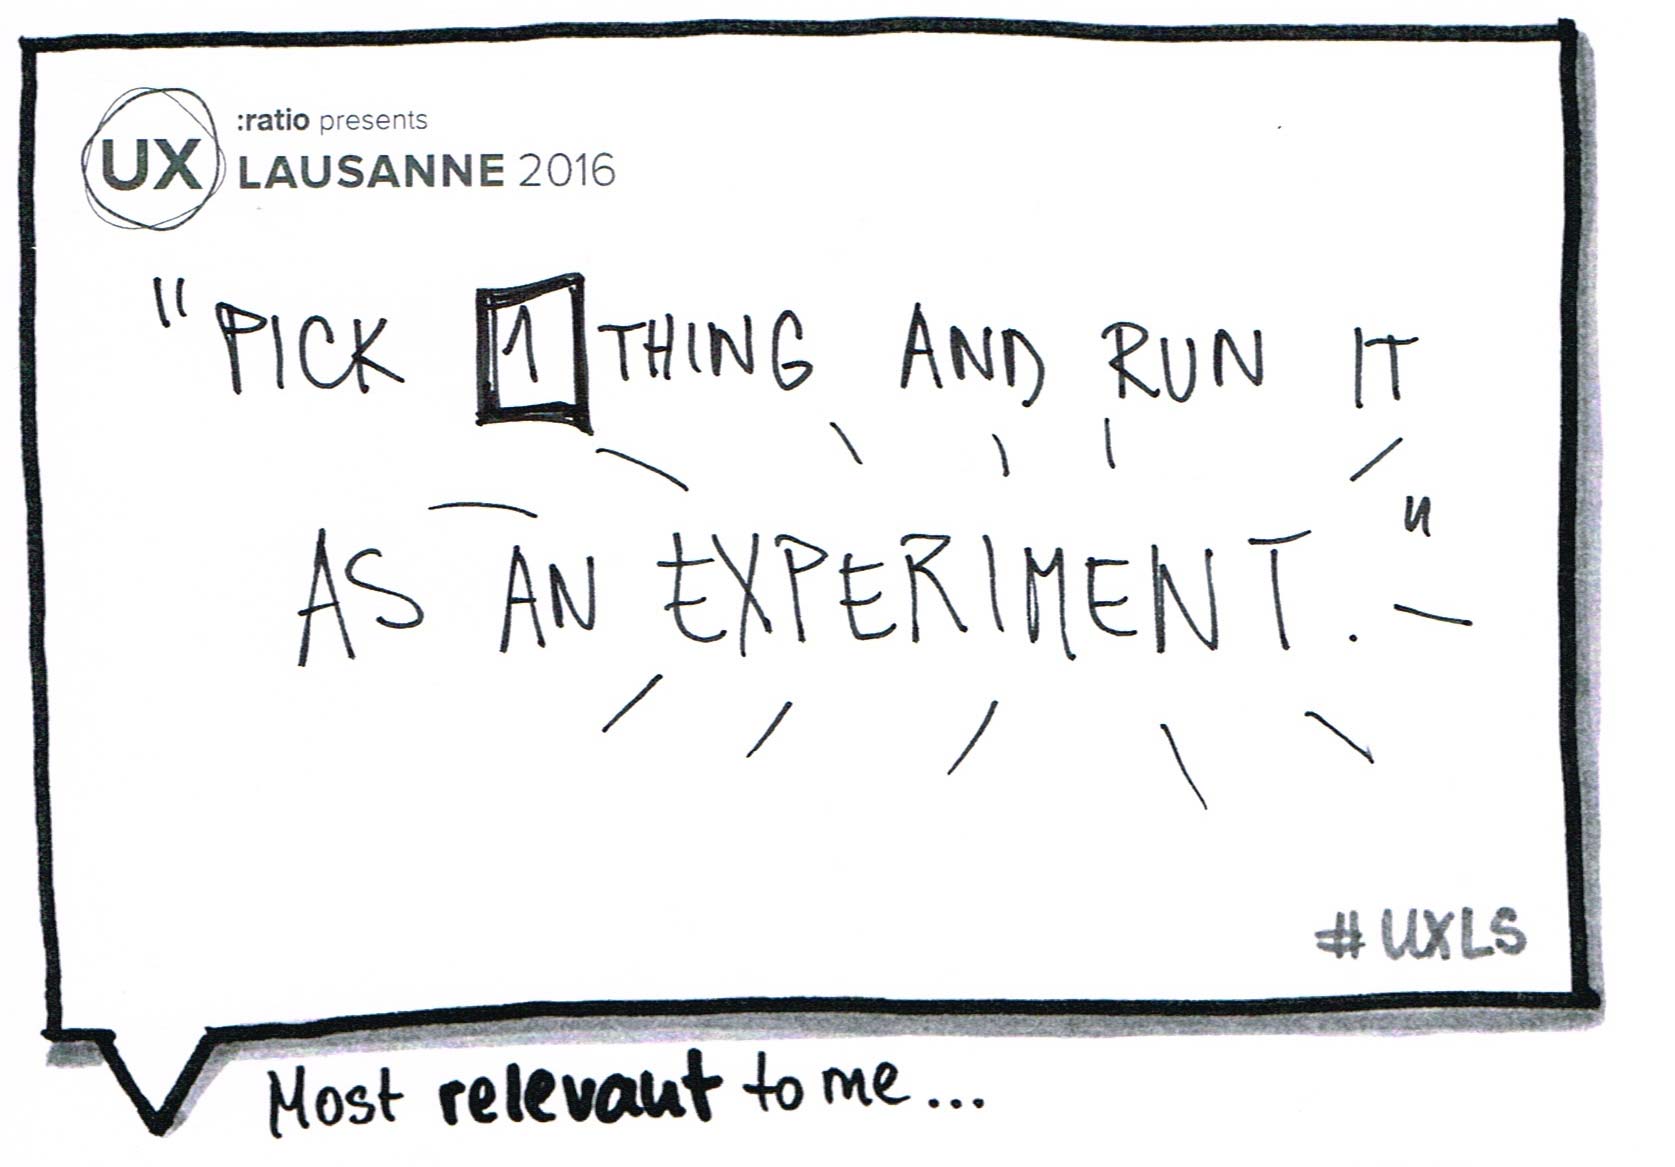 UX
:ratio presents
LAUSANNE 2016
"PICK 1 THING AND RUN IT
AS AN EXPERIMENT."
#UXLS
Most relevant to me...